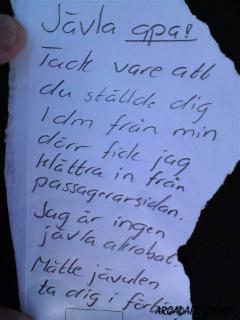 Jävla apa!
Tack vare att
du ställde dig
1 dm från min
dörr fick jag
klättra in från
passagerarsidan.
Jag är ingen
jävla akrobat!
Måtte jävulen
ta dig i